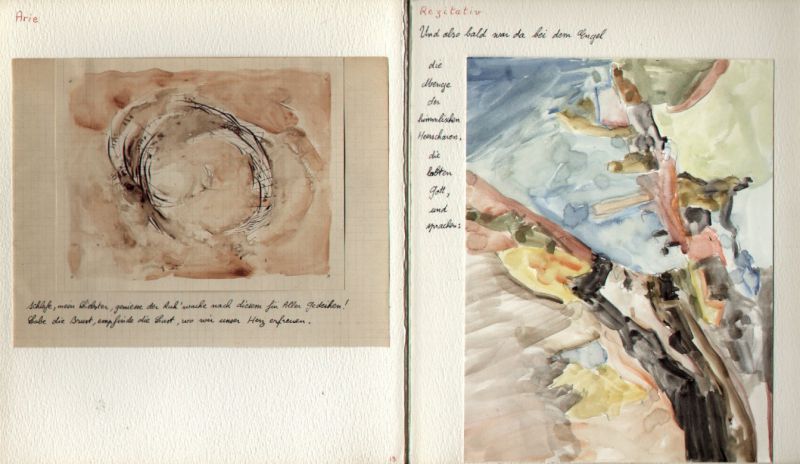 Arie
Schlafe, mein Liebster, geniesse der Ruh' wache nach diesem für Aller Gedeihen!
Labe die Brust, empfinde die Lust, wo wir unser Herz erfreuen.
13
Rezitativ
Und also bald war da bei dem Engel
die
Menge
der
himmlischen
Heerscharen.
die
lobten
Gott,
und
sprachen: